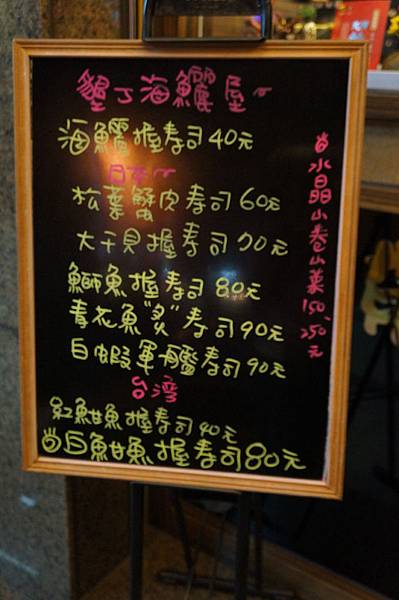 墾丁海鱺屋~
海鱺握壽司40元
日本~
松葉蟹皮壽司60元
大干貝握壽司70元
鰤魚握壽司80元
青花魚"炙"壽司90元
白蝦軍艦壽司90元
台灣
紅魽魚握壽司40元
白魽魚握壽司80元
水晶山卷山葵150、250元